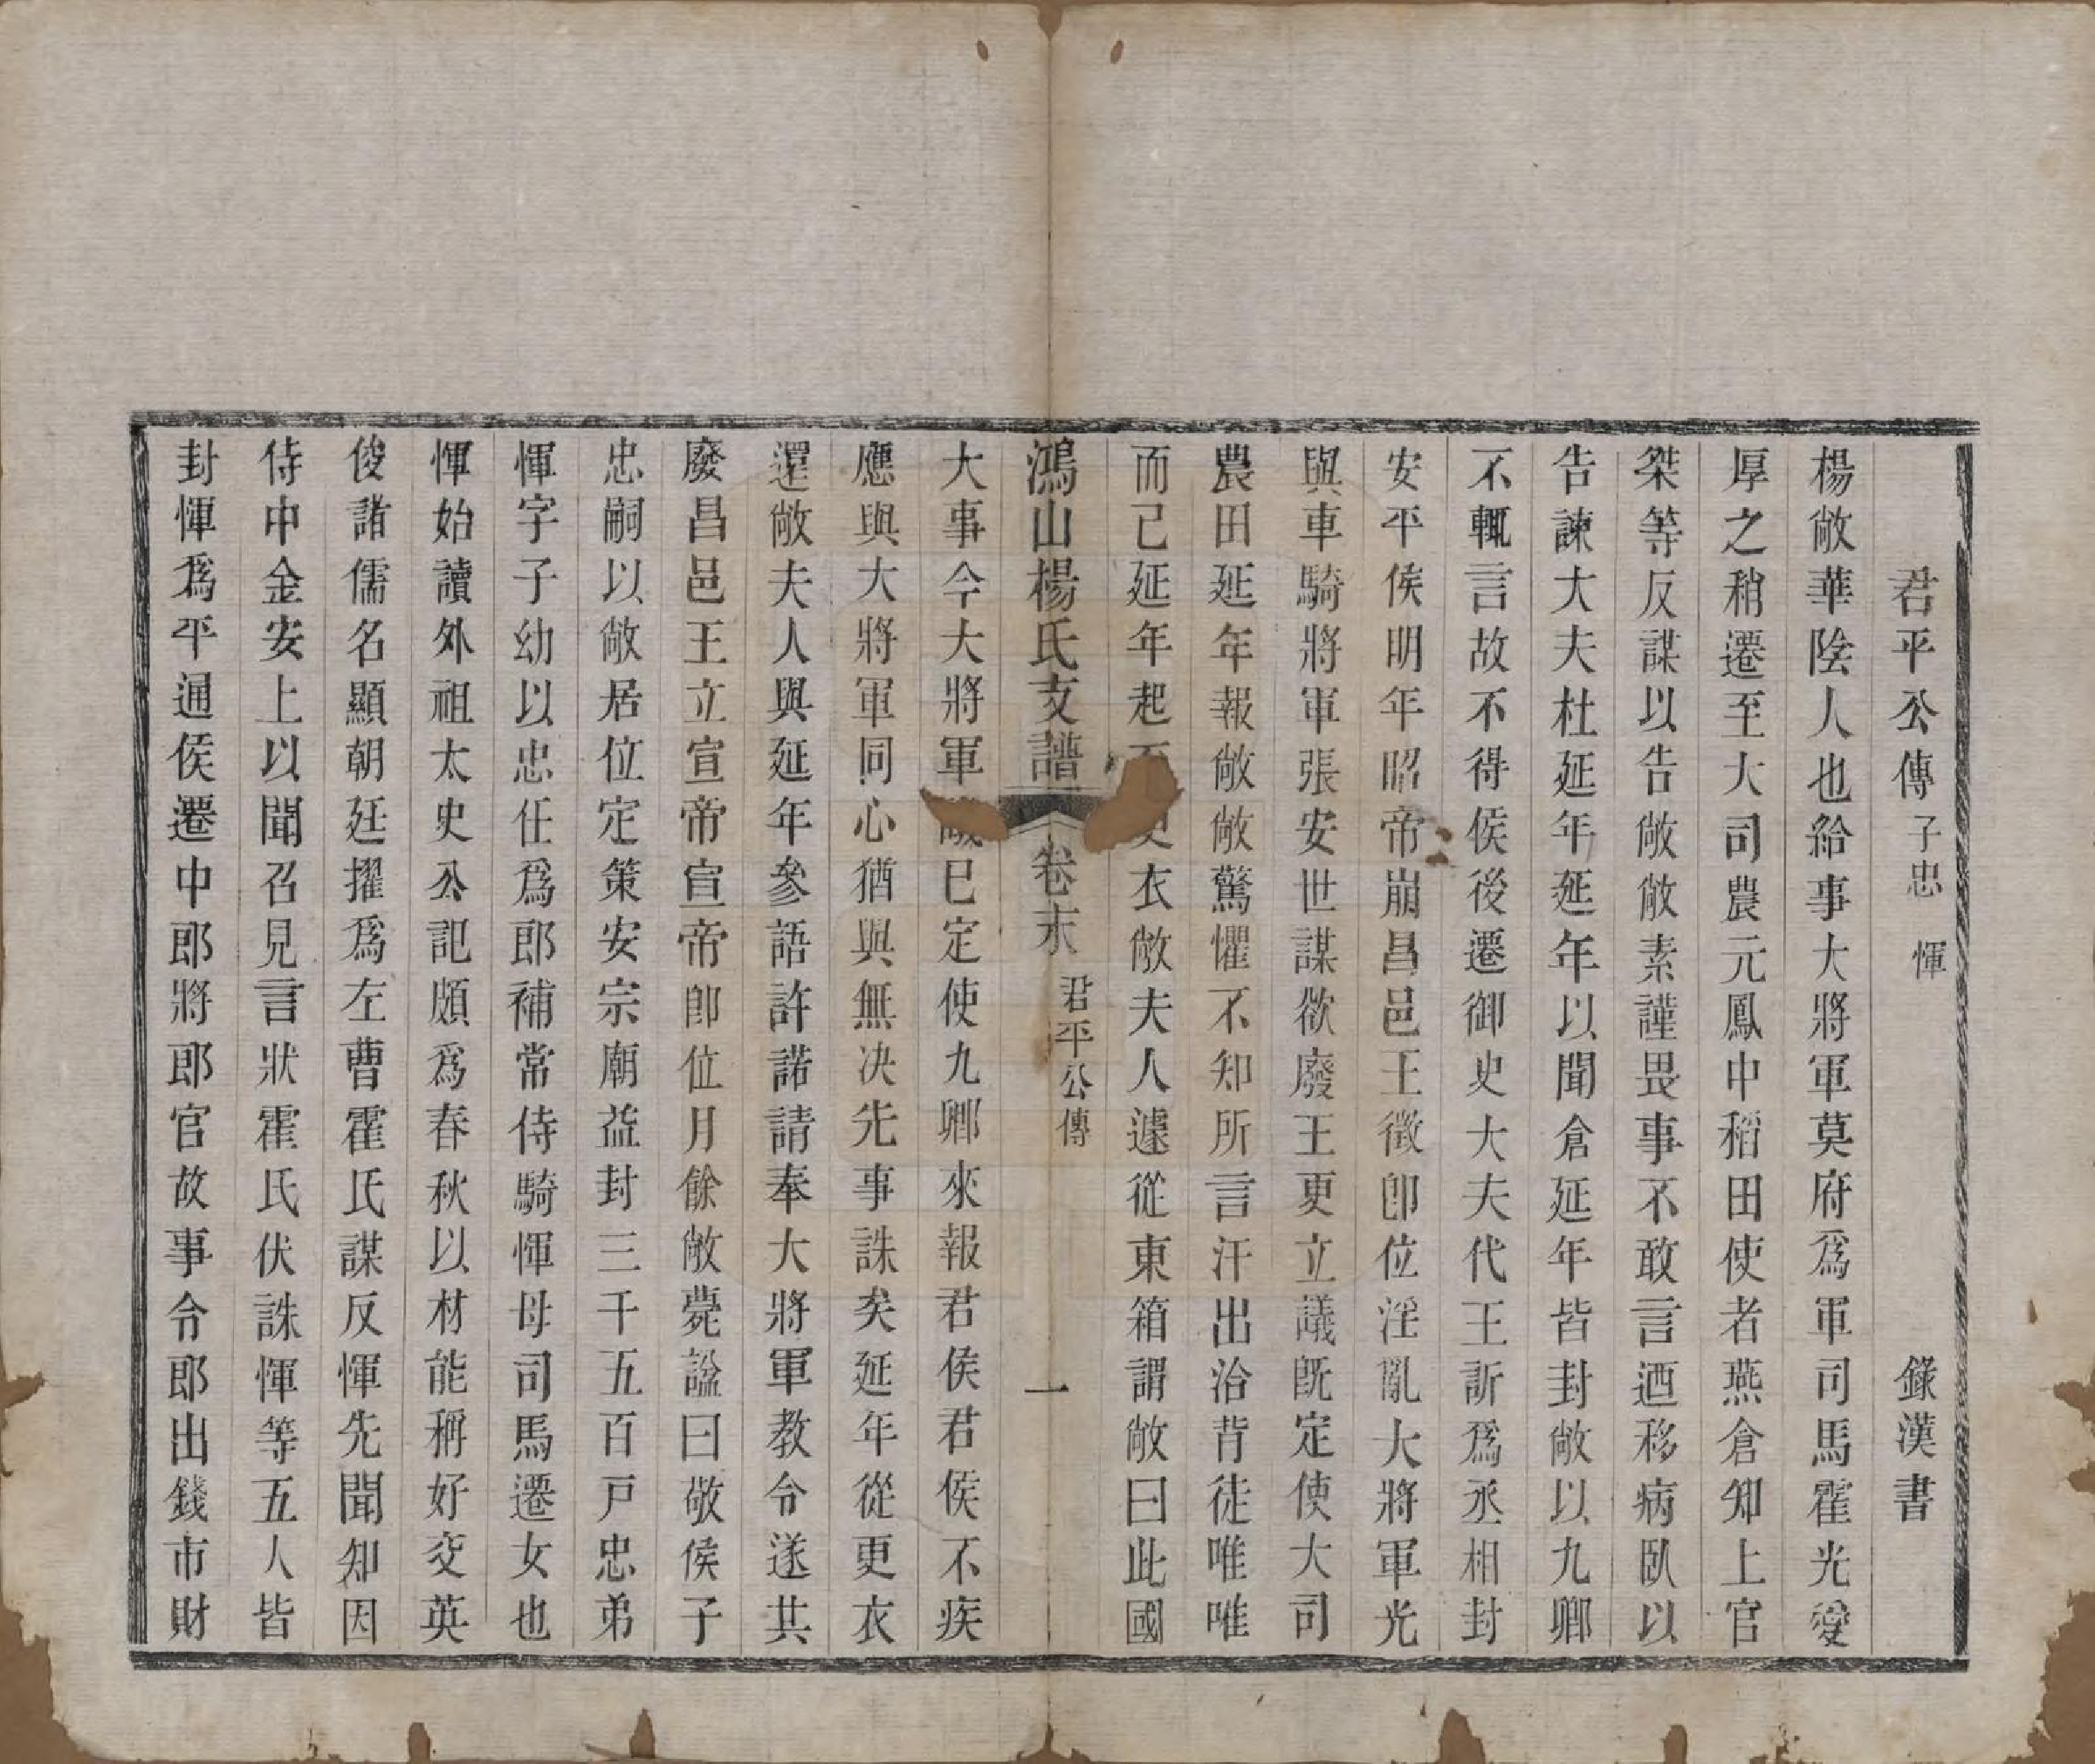 君平公傳子忠 惲 錄漢書
楊敞華陰人也給事大將軍莫府爲軍司馬霍光愛
厚之稍遷至大司農元鳳中稻田使者燕倉知上官
桀等反謀以告敞敞素謹畏事不敢言迺移病臥以
告諫大夫杜延年延年以聞倉延年皆封敞以九卿
不輒言故不得侯後遷御史大夫代王訢爲丞相封
安平侯明年昭帝崩昌邑王徵卽位淫亂大將軍光
與車騎將軍張安世謀欲廢王更立議旣定使大司
農田延年報敞敞驚懼不知所言汗出洽背徒唯唯
而已延年起至更衣敞夫人遽從東箱謂敞曰此國
鴻山楊氏支譜 卷末 君平公傳 一
大事今大將軍議已定使九卿來報君侯君侯不疾
應與大將軍同心猶與無决先事誅矣延年從更衣
還敞夫人與延年參語許諾請奉大將軍教令遂共
廢昌邑王立宣帝宣帝卽位月餘敞薨謚曰敬侯子
忠嗣以敞居位定策安宗廟益封三千五百戸忠弟
惲字子幼以忠任爲郎補常侍騎惲母司馬遷女也
惲始讀外祖太史公記頗爲春秋以材能稱好交英
俊諸儒名顯朝廷擢爲左曹霍氏謀反惲先聞知因
侍中金安上以聞召見言狀霍氏伏誅惲等五人皆
封惲爲平通侯遷中郎將郎官故事令郎出錢市財